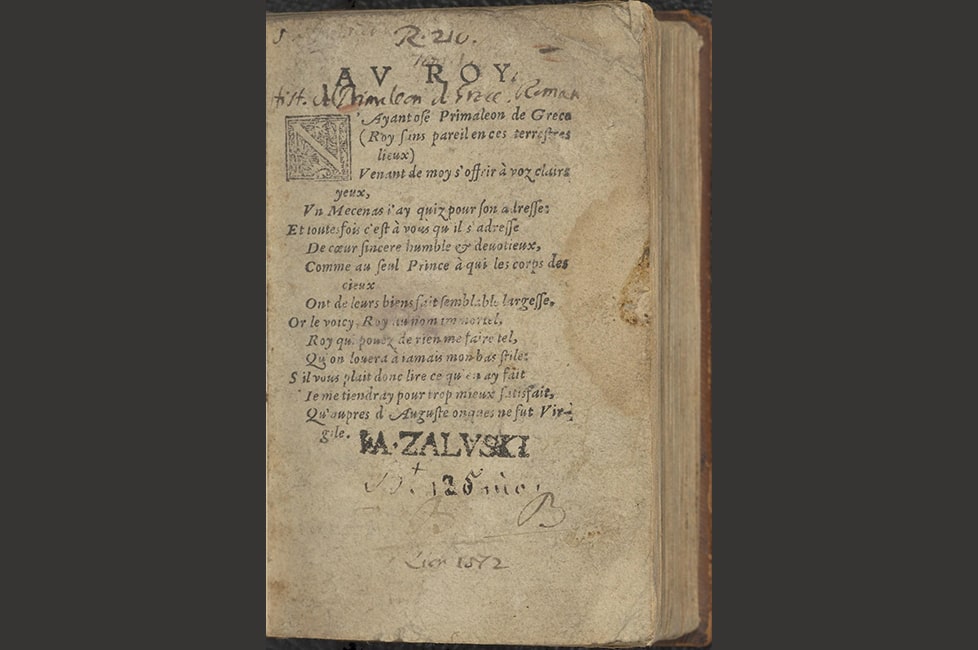 R. 210.
AV ROY,
Hist. de Primaleon de Grece. Roman
N'Ayant osé Primaleon de Grece
(Roy sans pareil en ces terrestres
lieux)
Venant de moy s'offrir à voz clairs
yeux,
Vn Mecenas i'ay quiz pour son adresse:
Et toutesfois c'est à vous qu'il s'adresse
De cœur sincere humble & deuotieux,
Comme au seul Prince à qui les corps des
cieux
Ont de leurs biens fait semblable largesse,
Or le voicy, Roy au nom immortel,
Roy qui pouez de rien me faire tel,
Qu'on louera à iamais mon bas stile:
S'il vous plait donc lire ce qu'en ay fait
Ie me tiendray pour trop mieux satisfait,
Qu'aupres d'Auguste onques ne fut Vir-
gile.
I·A·ZALVSKI
B
Lion 1572